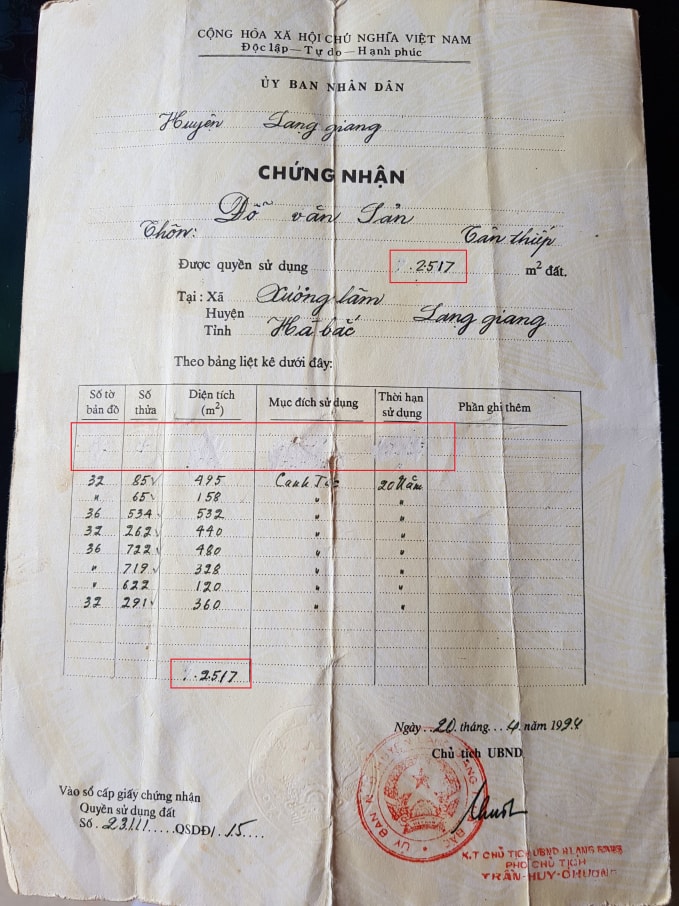 CỘNG HÒA XÃ HỘI CHỦ NGHĨA VIỆT NAM
Độc lập — Tự do — Hạnh phúc
ỦY BAN NHÂN DÂN
Huyện Lạng giang
CHỨNG NHẬN
Đỗ văn Sản
Thôn: Tân thiếp
Được quyền sử dụng .2517 m² đất.
Tại : Xã Xương lâm
Huyện Lạng giang
Tỉnh Hà bắc
Theo bảng liệt kê dưới đây:
Số tờ bản đồ Số thửa Diện tích (m²) Mục đích sử dụng Thời hạn sử dụng Phần ghi thêm
32 85 495 Canh 20 Năm
" 65 158 "
36 534 532 " "
32 262 440 " "
36 722 480 " "
" 719 328 " "
" 622 120 " "
32 291 360 " "
.2517
Ngày 20 tháng 4 năm 1994
Chủ tịch UBND
Vào sổ cấp giấy chứng nhận
Quyền sử dụng đất
Số .23111.....QSDĐ/.15....
K.T CHỦ TỊCH UBND H LẠNG GIANG
PHÓ CHỦ TỊCH
TRẦN-HUY-CHƯƠNG